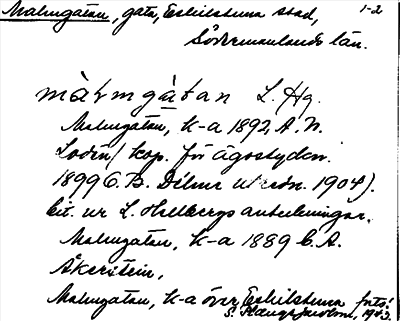 Malmgatan, gata, Eskilstuna stad, 1-2
Södermanlands län.
màlmgàtan L. Hg.
Malmgatan, k-a 1892, A. N.
Lodén/ kop. för ägostyckn.
1899 C. B. Dilner utredn. 1904).
Cit. ur L. Hellbergs anteckningar.
Malmgatan, k-a 1889 C. A.
Åkerstein,
Malmgatan, k-a över Eskilstuna forts!
S. 1943.